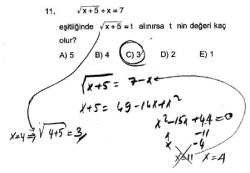 11. √x+5 + x = 7
eşitliğinde √x+5 = t alınırsa t nin değeri kaç
olur?
A) 5 B) 4 C) 3 D) 2 E) 1
√x+5 = 7-x
x+5 = 49-14x+x²
x²-15x+44=0
x -11
x -4
x=11 x=4
x=4 ⇒ √4+5 = 3